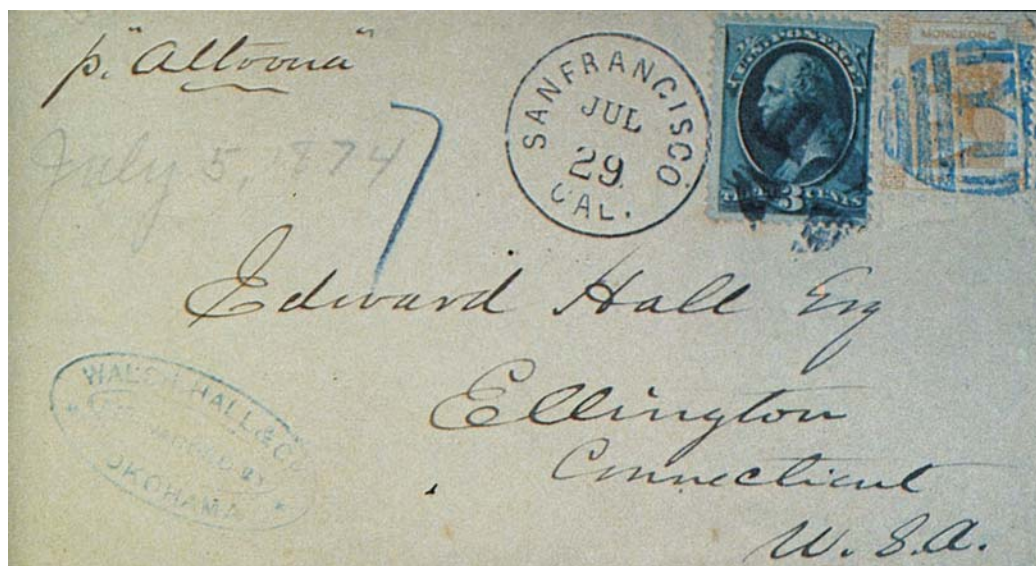 p. "Altoona"
July 5, 1874
7
SAN FRANCISCO
JUL
29
CAL.
U.S. POSTAGE
THREE 3 CENTS
HONGKONG
Edward Hall Esq
Ellington
Connecticut
U.S.A.
WALSH, HALL & Co
FORWARDED BY
YOKOHAMA